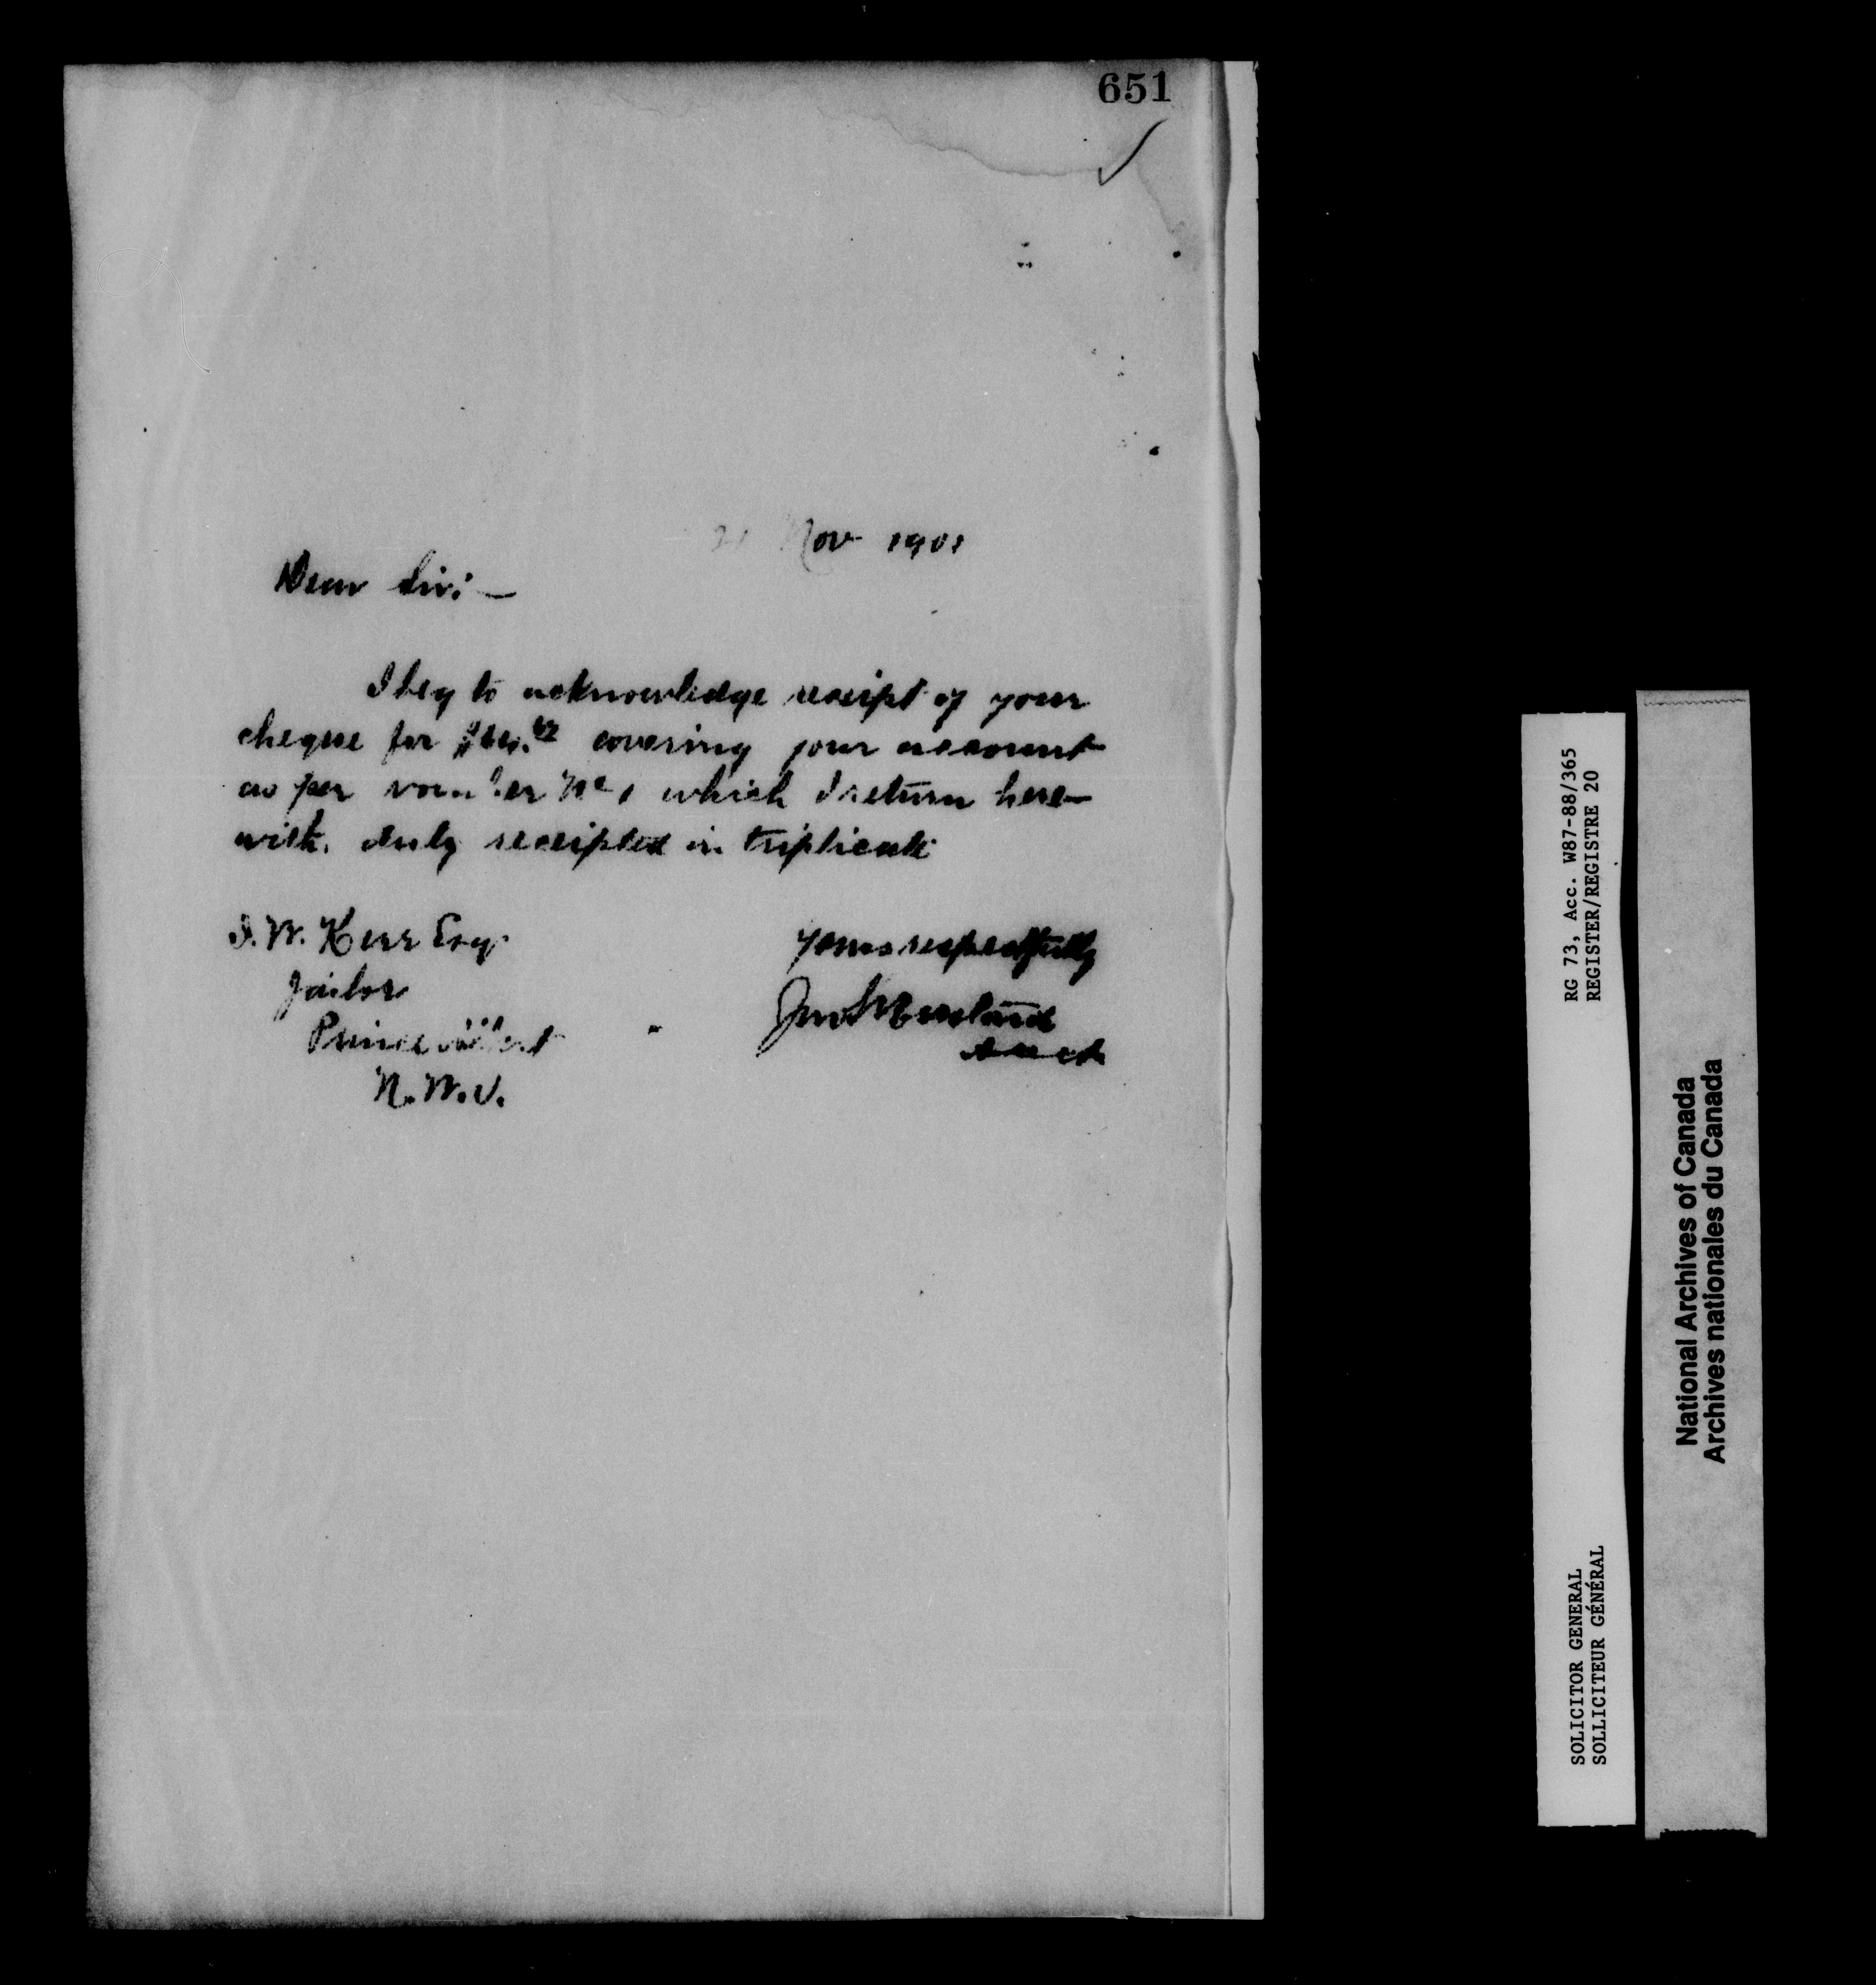 651
21 Nov 1901
Dear Sir:—
I beg to acknowledge receipt of your
cheque for covering your account
as per voucher No 1 which I return here-
with, duly receipted in triplicate
J. W. Kerr Esq.
Jailor
Prince Albert
N.W.T.
Yours respectfully
RG 73, Acc. W87-88/365
REGISTER/REGISTRE 20
SOLICITOR GENERAL
SOLLICITEUR GÉNÉRAL
National Archives of Canada
Archives nationales du Canada